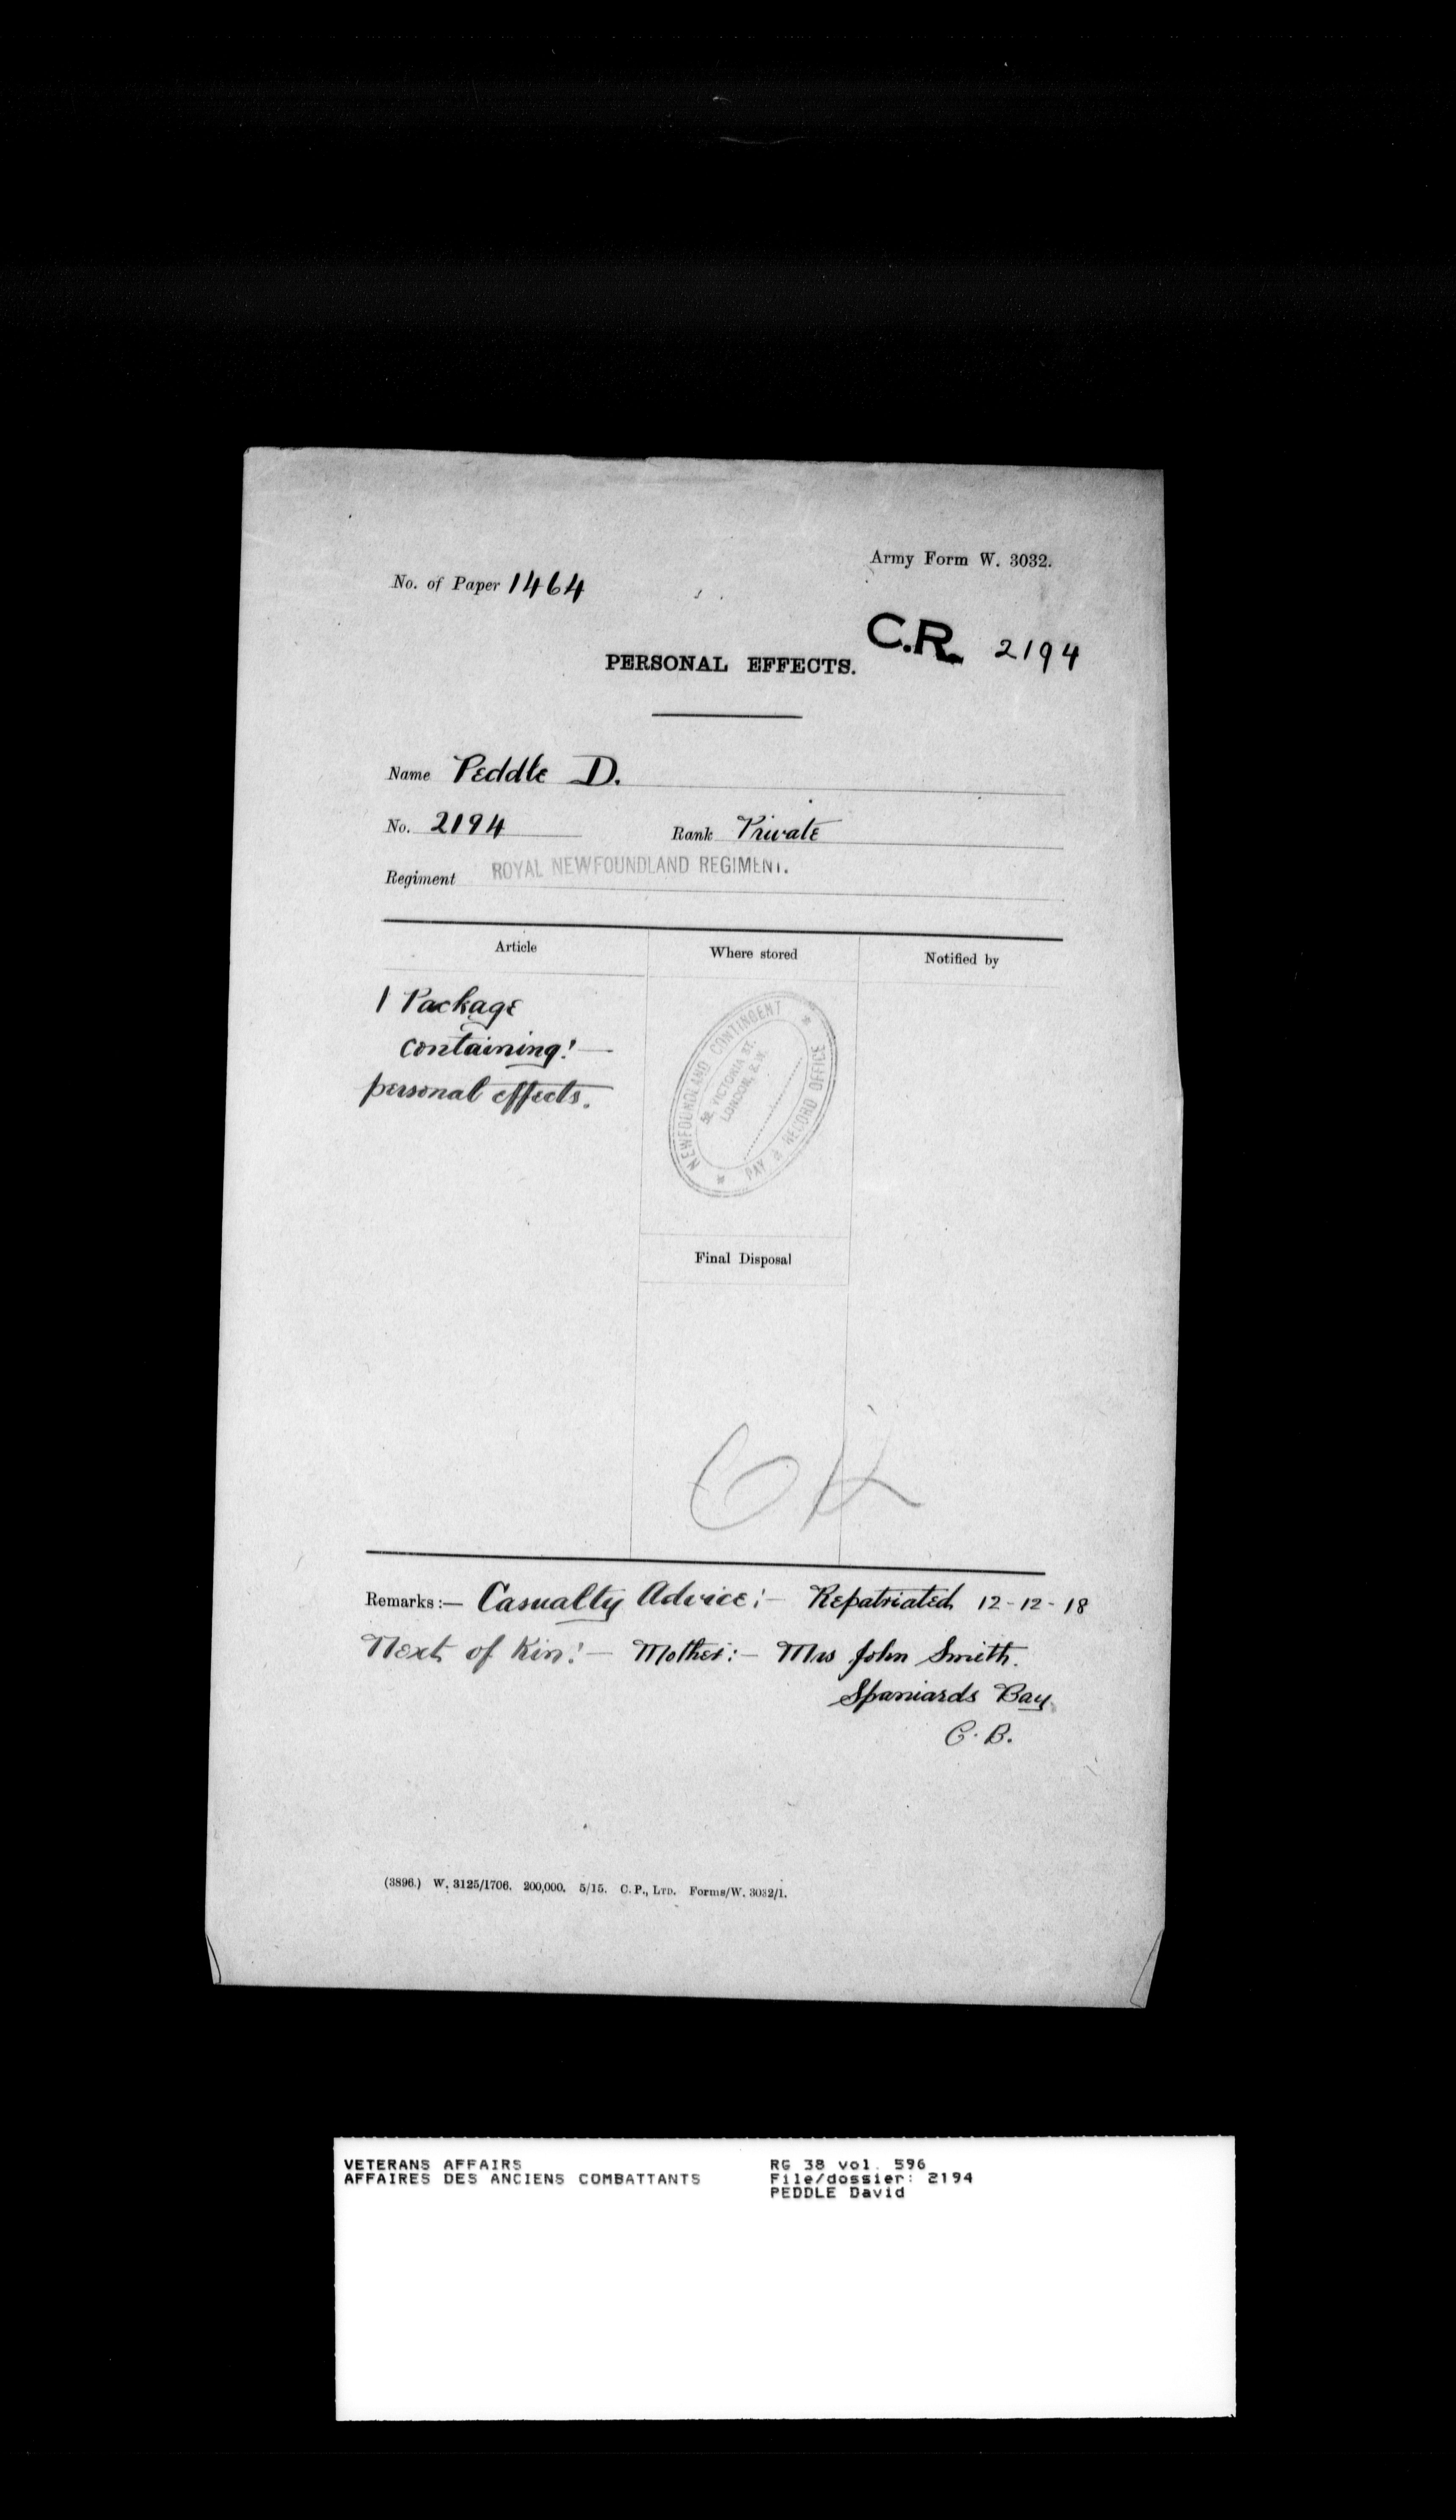 Army Form W. 3032.
No. of Paper 1464
C.R. 2194
PERSONAL EFFECTS.
Name Peddle D.
No. 2194 Rank Private
Regiment ROYAL NEWFOUNDLAND REGIMENT.
Article Where stored Notified by
1 Package
containing:—
personal effects.
NEWFOUNDLAND CONTINGENT
VICTORIA ST.
LONDON, S.W.
PAY & RECORD OFFICE
Final Disposal
OK
Remarks:— Casualty Advice:— Repatriated 12-12-18
Next of Kin:— Mother:— Mrs John Smith.
Spaniards Bay
C. B.
(3896.) W. 3125/1706. 200,000. 5/15. C. P., LTD. Forms/W. 3032/1.
VETERANS AFFAIRS RG 38 vol. 596
AFFAIRES DES ANCIENS COMBATTANTS File/dossier: 2194
PEDDLE David